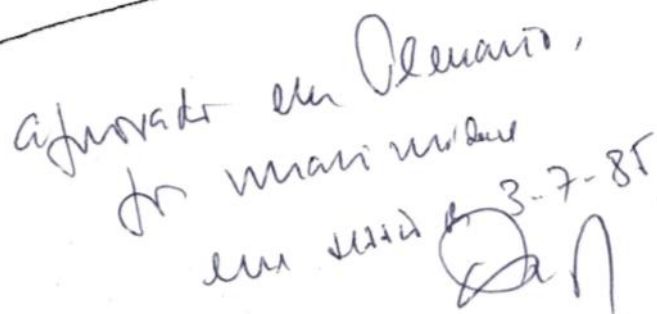 aprovado em Plenario,
por unanimidade
em sessão de 3-7-85